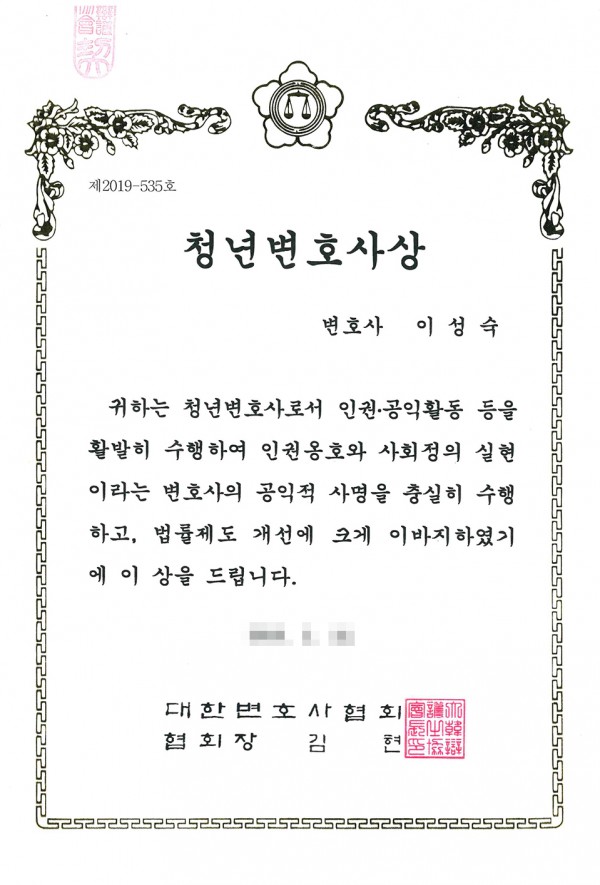 제2019-535호
청년변호사상
변호사 이성숙
귀하는 청년변호사로서 인권·공익활동 등을
활발히 수행하여 인권옹호와 사회정의 실현
이라는 변호사의 공익적 사명을 충실히 수행
하고, 법률제도 개선에 크게 이바지하였기
에 이 상을 드립니다.
대한변호사협회
협회장 김 현